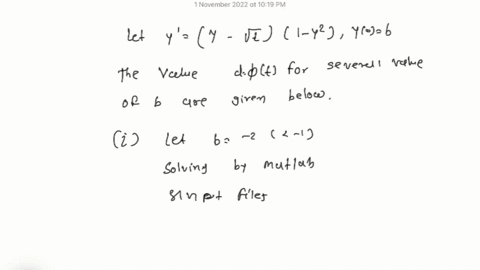 1 November 2022 at 10:19 PM
let y' = (y - √t) (1-y²), y(0)=b
the value d.φ(t) for several value
of b are given below.
(i) let b = -2 (<-1)
Solving by matlab
script files